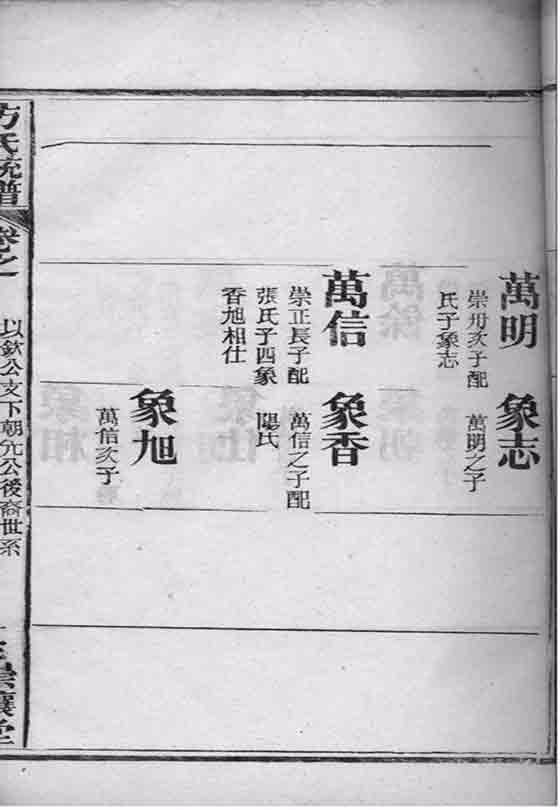 萬明
崇卅次子配
氏子象志
象志
萬明之子
萬信
崇正長子配
張氏子四象
香旭相仕
象香
萬信之子配
陽氏
象旭
萬信次子
方氏統譜
卷之
以欽公支下朝允公後裔世系